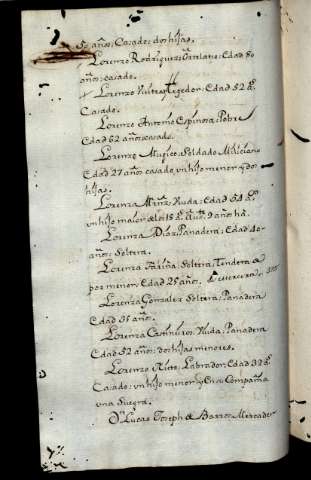 50 años: Casado: dos hijas.
Lorenzo Rodriguez: Edad 80
años: casado.
Lorenzo Texedor: Edad 52 as.
Casado.
Lorenzo Antonio Espinosa: Pobre
Edad 62 años: casado.
Lorenzo Mugico: Soldado Miliciano
Edad 27 años casado, vn hijo menor y dos
hijas.
Lorenza Muñz. Viuda: Edad 54 as.
vn hijo maior de los 18 as. 9 años há.
Lorenza Diaz: Panadera: Edad 40
años: Soltera.
Lorenza Fariña: Soltera: Tendera
por menor: Edad 25 años.
Lorenza Gonzalez Soltera: Panadera
Edad 35 años.
Lorenza Viuda: Panadera
Edad 52 años: dos hijas menores.
Lorenzo Nieto: Labrador: Edad 32 as.
Casado: vn hijo menor y En su Compañia
vna Suegra.
Dn. Lucas Joseph de Barros Mercader